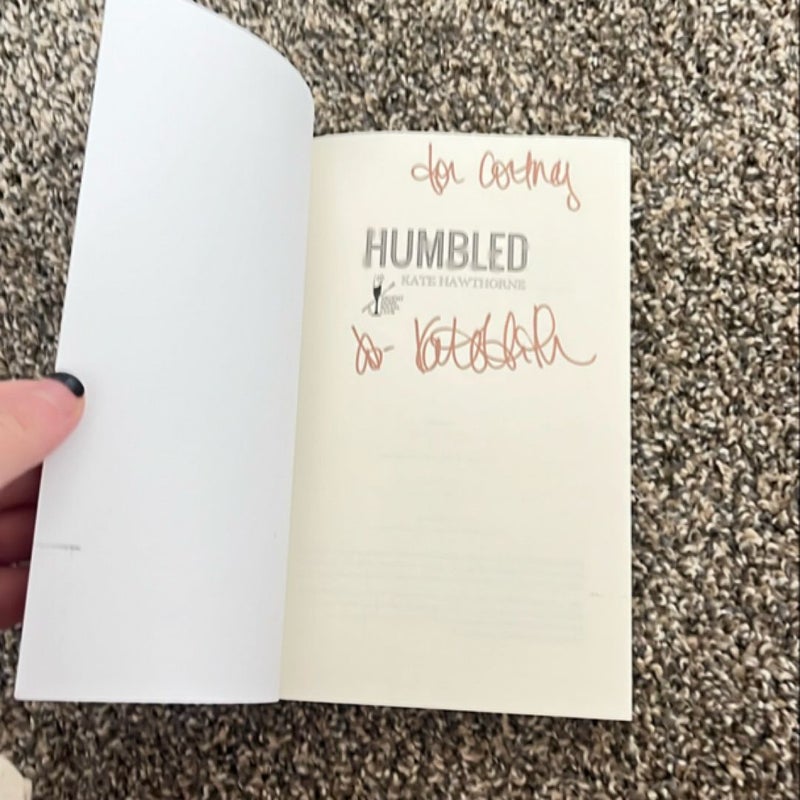 for Cortney
HUMBLED
KATE HAWTHORNE
xo- Kate Hawthorne